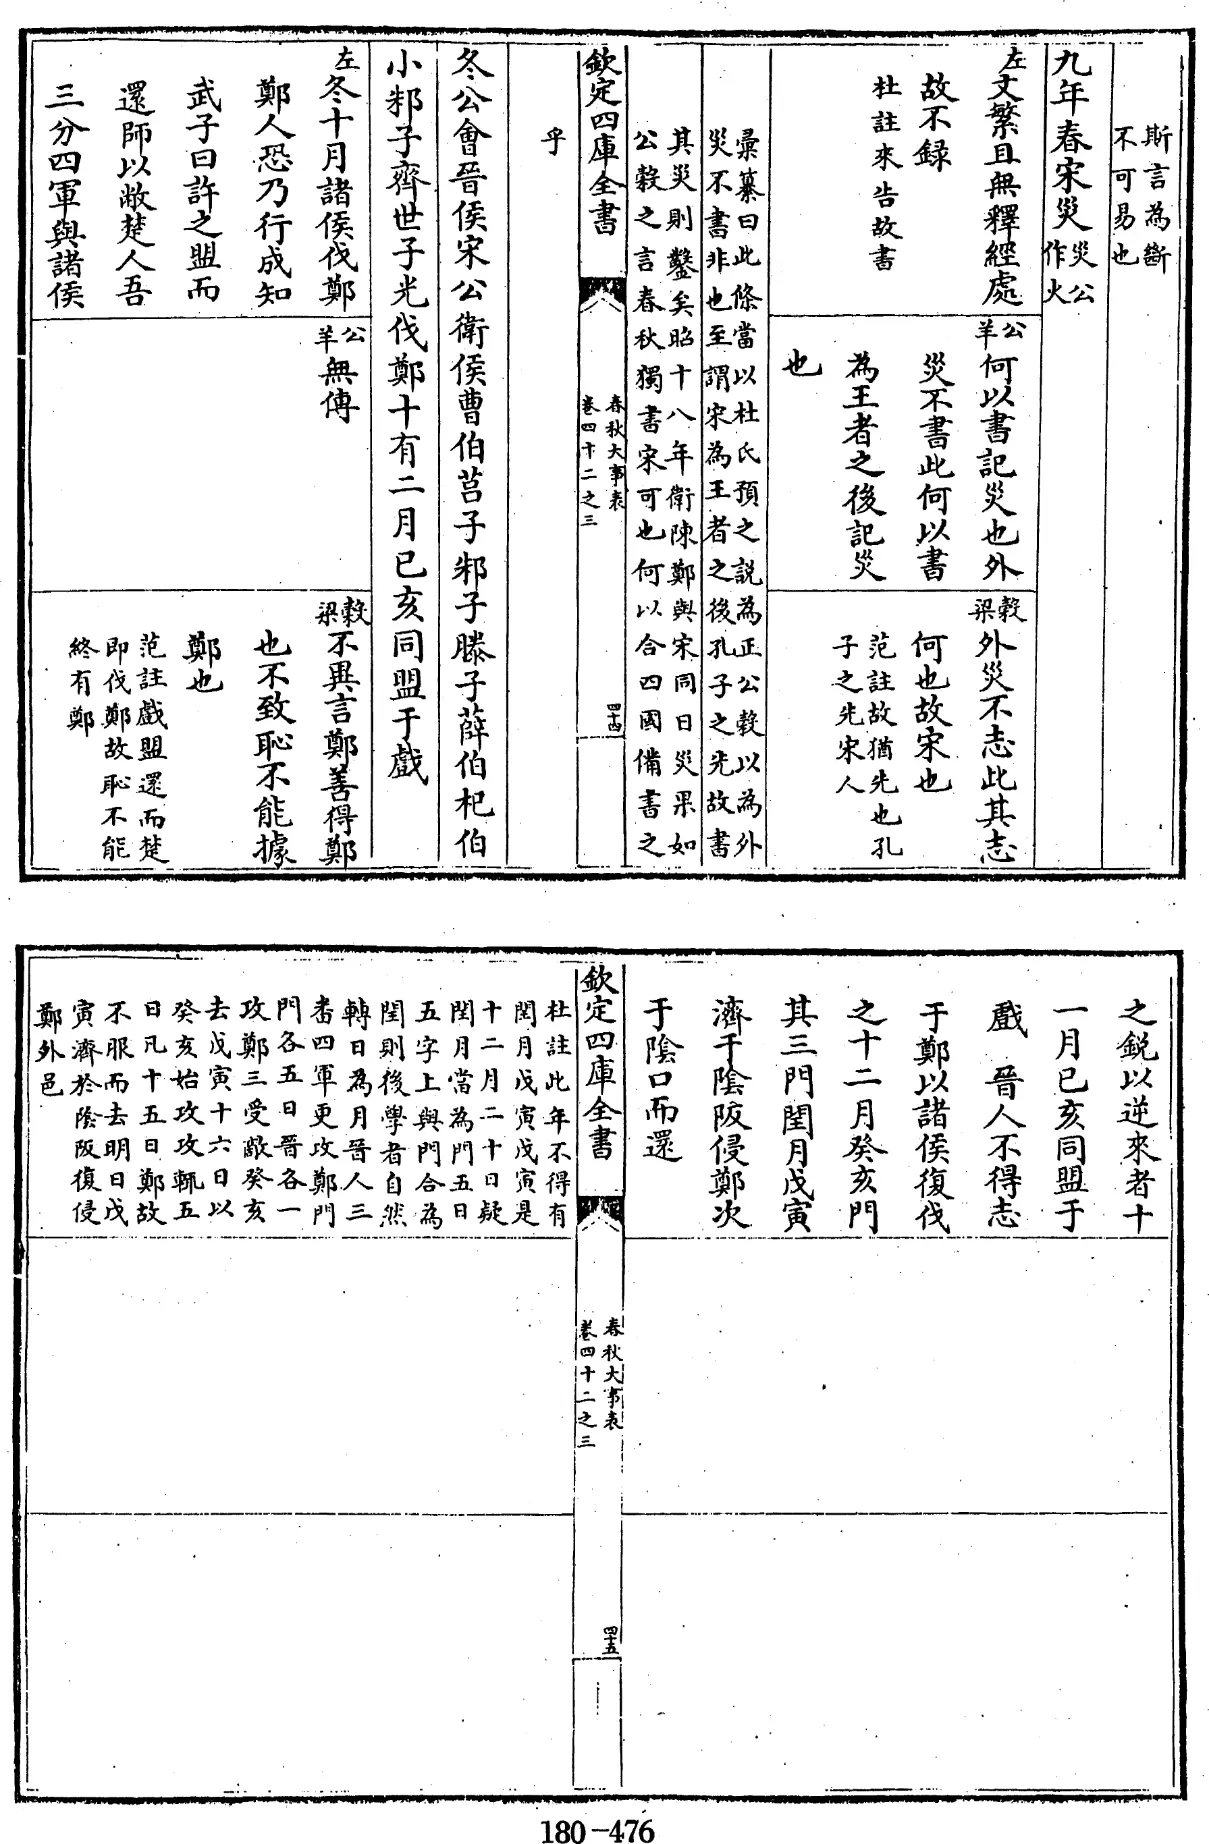 斯言為斷
不可易也
九年春宋災災公
作火
左文繁且無釋經處
故不録
杜註來告故書
公羊何以書記災也外
災不書此何以書
為王者之後記災
也
穀梁外災不志此其志
何也故宋也
范註故猶先也孔
子之先宋人
彙纂曰此條當以杜氏預之說為正公穀以為外
災不書非也至謂宋為王者之後孔子之先故書
其災則鑿矣昭十八年衛陳鄭與宋同日災果如
公穀之言春秋獨書宋可也何以合四國備書之
乎
欽定四庫全書
春秋大事表
卷四十二之三
四十四
冬公會晉侯宋公衛侯曹伯莒子邾子滕子薛伯杞伯
小邾子齊世子光伐鄭十有二月已亥同盟于戲
左冬十月諸侯伐鄭
鄭人恐乃行成知
武子曰許之盟而
還師以敝楚人吾
三分四軍與諸侯
公羊無傳
穀梁不異言鄭善得鄭
也不致恥不能據
鄭也
范註戲盟還而楚
即伐鄭故恥不能
終有鄭
之銳以逆來者十
一月已亥同盟于
戲 晉人不得志
于鄭以諸侯復伐
之十二月癸亥門
其三門閏月戊寅
濟于陰阪侵鄭次
于陰口而還
欽定四庫全書
春秋大事表
卷四十二之三
四十五
杜註此年不得有
閏月戊寅戊寅是
十二月二十日疑
閏月當為門五日
五字上與門合為
閏則後學者自然
轉日為月晉人三
番四軍更攻鄭門
門各五日晉各一
攻鄭三受敵癸亥
去戊寅十六日以
癸亥始攻攻輒五
日凡十五日鄭故
不服而去明日戊
寅濟於陰阪復侵
鄭外邑
180-476